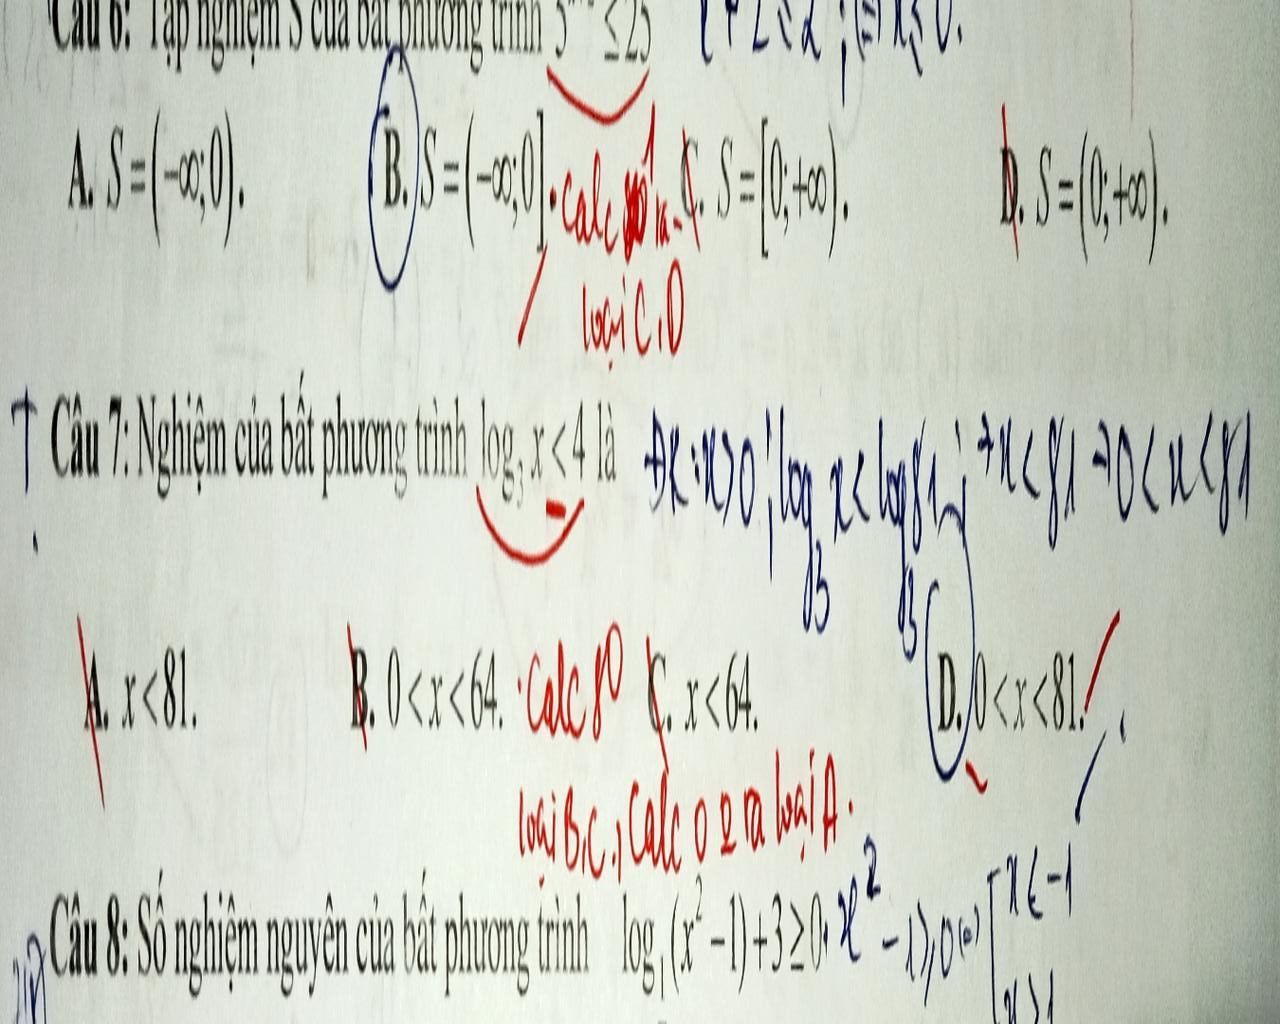 Câu 6: Tập nghiệm S của bất phương trình 5 ≤ 25
A. S = (−∞; 0). B. S = (−∞; 0]. C. S = [0; +∞). D. S = (0; +∞).
calc 1
loại C, D
Câu 7: Nghiệm của bất phương trình log₃ x < 4 là ĐK: x > 0; log₃ x < log₃ 81; → x < 81 → 0 < x < 81
A. x < 81. B. 0 < x < 64. C. x < 64. D. 0 < x < 81.
calc 80
loại B, C, calc 0 ra loại A.
Câu 8: Số nghiệm nguyên của bất phương trình log₁ (x² − 1) + 3 ≥ 0. x² − 1 > 0 ⇔ [ x < −1
x > 1